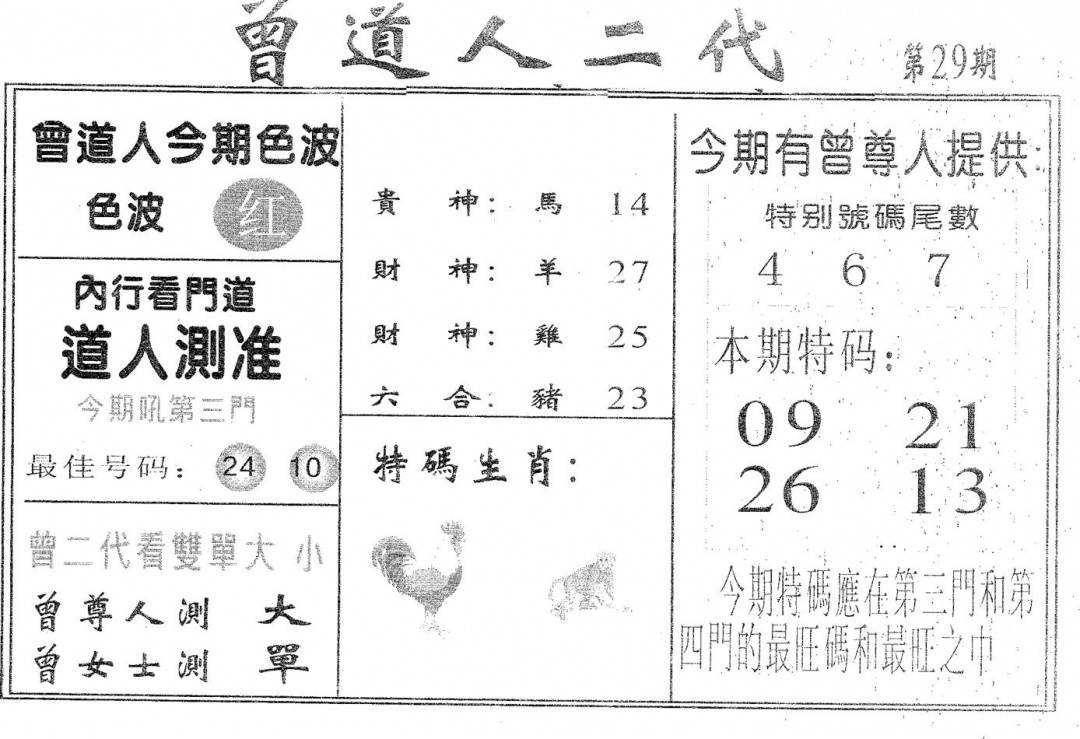 曾道人二代
第29期
曾道人今期色波
色波 红
內行看門道
道人測准
今期吼第三門
最佳号码: 24 10
曾二代看雙單大 小
曾尊人測 大
曾女士測 單
貴 神: 馬 14
財 神: 羊 27
財 神: 雞 25
六 合: 豬 23
特碼生肖:
今期有曾尊人提供:
特别號碼尾數
4 6 7
本期特码:
09 21
26 13
今期特碼應在第三門和第
四門的最旺碼和最旺之中